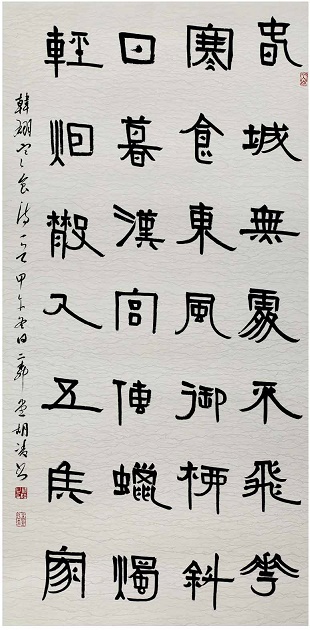 春城無處不飛花
寒食東風御柳斜
日暮漢宮傳蠟燭
輕烟散入五侯家
韓翃寒食詩一首甲午日二堂胡